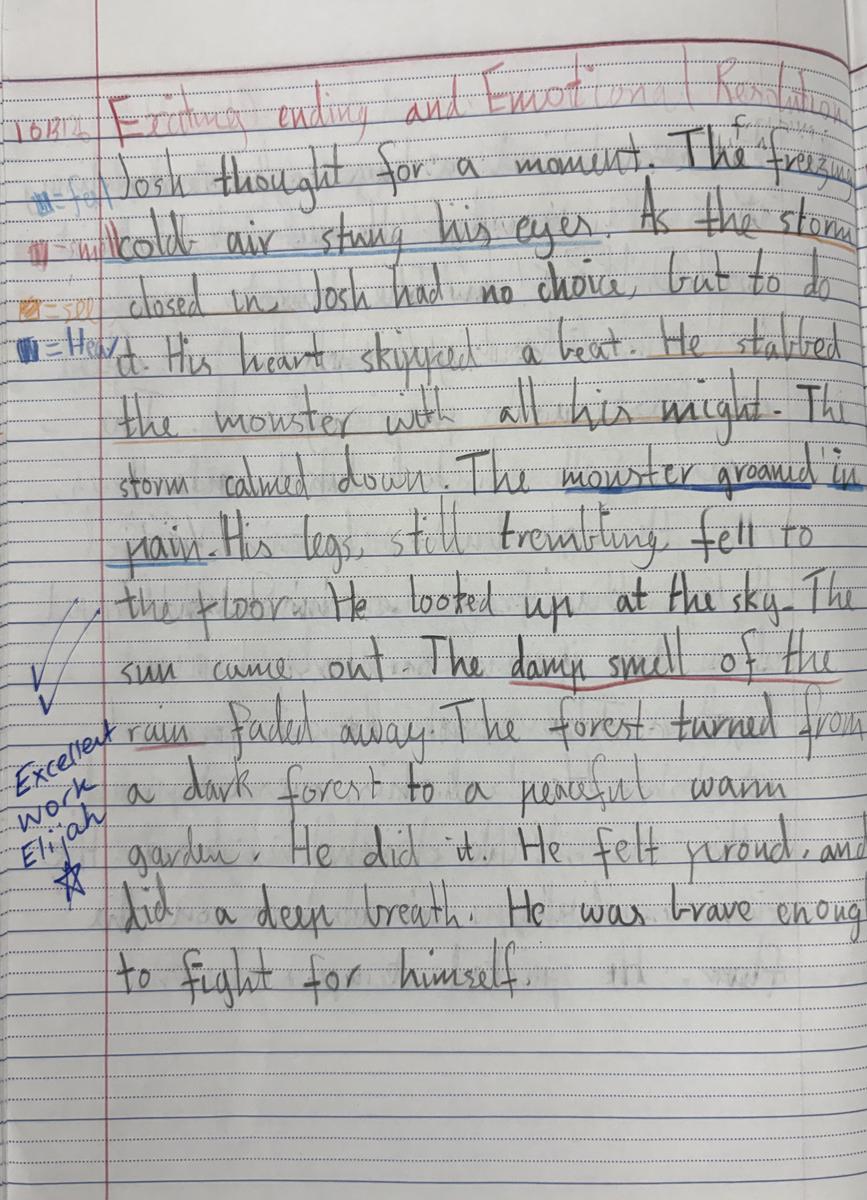 10B12 Exciting ending and Emotional Resolution
Josh thought for a moment. The freezing
= feel
cold air stung his eyes. As the storm
= smell
closed in, Josh had no choice, but to do
= see
it. His heart skipped a beat. He stabbed
= Hear
the monster with all his might. The
storm calmed down. The monster groaned in
pain. His legs, still trembling, fell to
the floor. He looked up at the sky. The
sun came out. The damp smell of the
rain faded away. The forest turned from
a dark forest to a peaceful warm
garden. He did it. He felt proud, and
did a deep breath. He was brave enoug
to fight for himself.
Excellent
work
Elijah